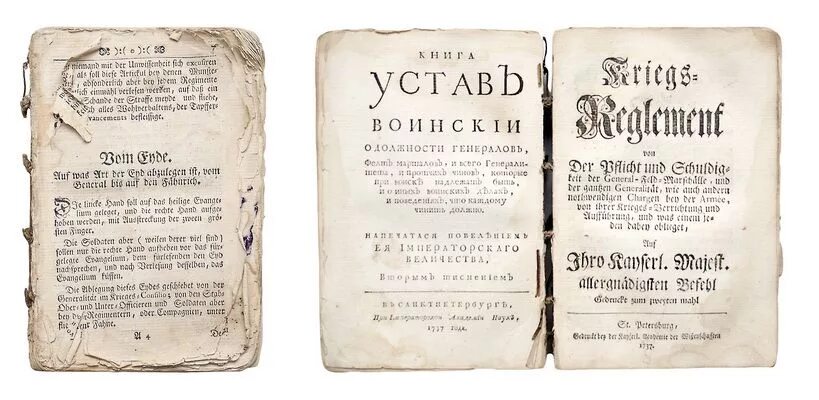 ):( o ):( 7
niemand mit der Unwissenheit sich excusiren
als soll diese Articlul bey denen Munste-
absonderlich aber bey jedem Regimente
sich einmahl verlesen werden, auf daß ein
Schande der Straffe meyde und fliehe,
ch alles Wohlverhaltens, der Tapffer-
vancements befleissige.
Vom Eyde.
Auf was Art der Eyd abzulegen ist, vom
General bis auf den Fähnrich.
Die lincke Hand soll auf das heilige Evange-
lium geleget, und die rechte Hand aufge-
hoben werden, mit Ausstreckung der zween grös-
sten Finger.
Die Soldaten aber (weilen derer viel sind)
sollen nur die rechte Hand aufheben vor das für-
gelegte Evangelium, dem fürlesenden den Eyd
nachsprechen, und nach Verlesung desselben, das
Evangelium küssen.
Die Ablegung dieses Eydes geschiehet von der
Generalität im Krieges-Consilio; von den Stabs
Ober- und Unter-Officieren und Soldaten aber
bey Regimentern, oder Compagnien, unter
Fahne.
A 4
КНИГА
УСТАВЪ
ВОИНСКIИ
О ДОЛЖНОСТИ ГЕНЕРАЛОВЪ,
Фелтъ маршаловъ, и всего Генерали-
тета, и протчихъ чиновъ, которые
при воискѣ надлежатъ быть,
и о иныхъ воинскихъ дѣлахъ,
и поведенiяхъ, что каждому
чинить должно.
НАПЕЧАТАСЯ ПОВЕЛѢНIЕМЪ
ЕЯ IМПЕРАТОРСКАГО
ВЕЛИЧЕСТВА,
Вторымъ тисненiемъ
ВЪ САНКТПЕТЕРБУРГѢ,
При Iмператорской Академiи Наукъ,
1737 года.
Kriegs-
Reglement
von
Der Pflicht und Schuldig-
keit der General-Feld-Marschälle, und
der gantzen Generalität, wie auch andern
nothwendigen Chargen bey der Armee,
von ihrer Krieges-Verrichtung und
Aufführung, und was einem je-
den dabey oblieget,
Auf
Ihro Kayserl. Majest.
allergnädigsten Befehl
Gedruckt zum zweyten mahl
St. Petersburg,
Gedruckt bey der Kayserl. Academie der Wissenschafften
1737.